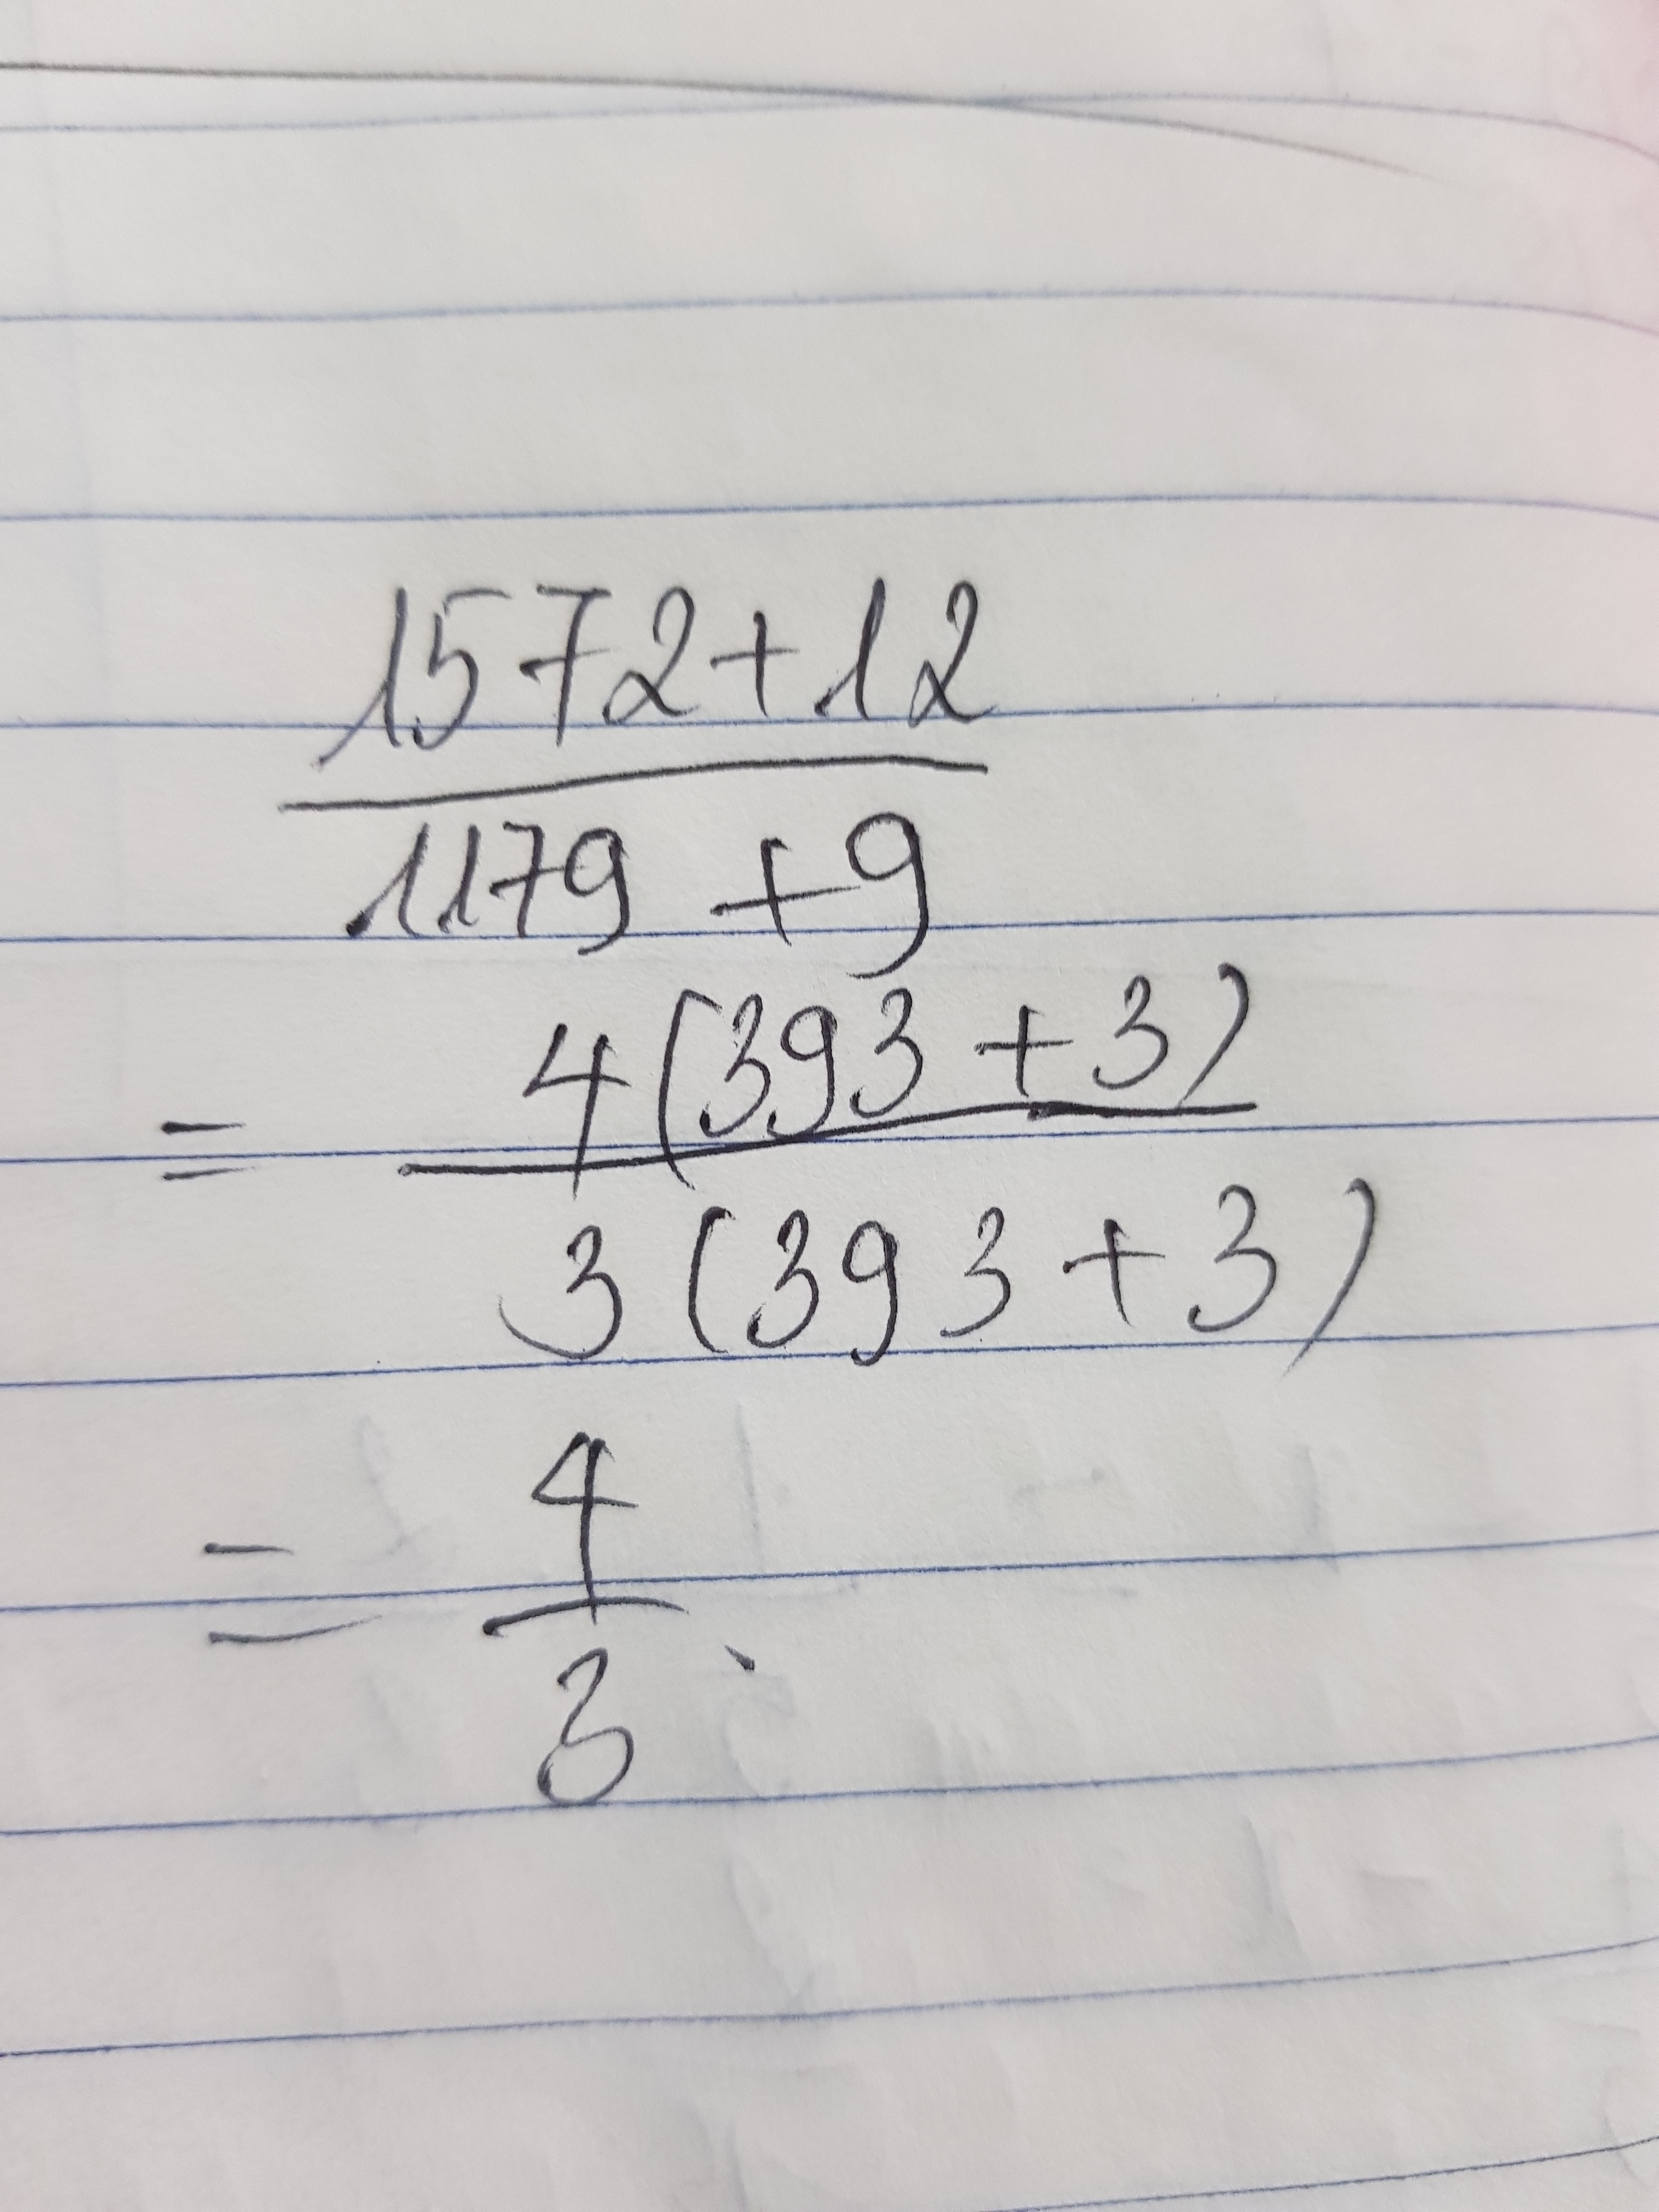 1572+12
1179 +9
= 4(393 + 3)
3(393 + 3)
= 4
3.